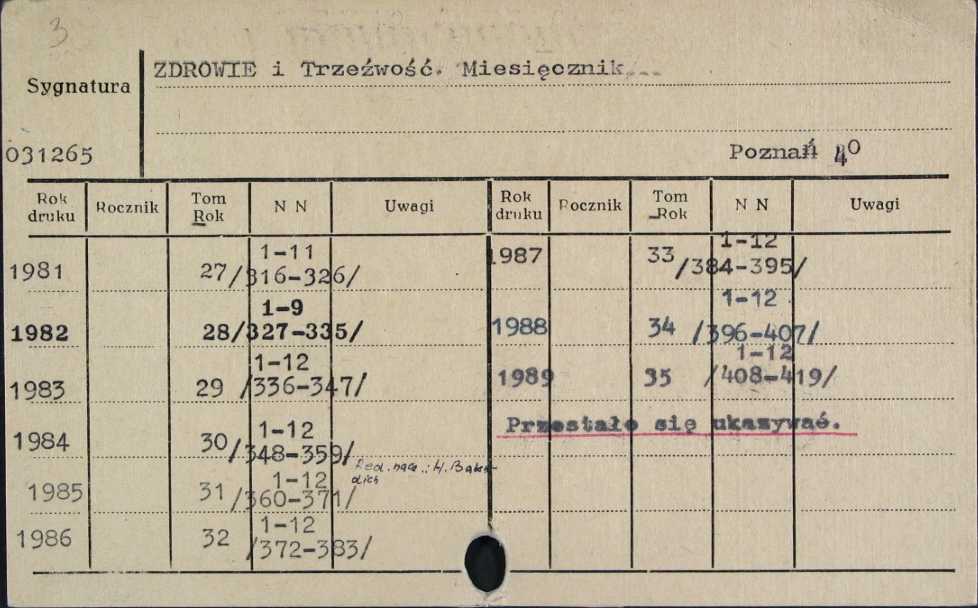 3
ZDROWIE i Trzeźwość. Miesięcznik
Sygnatura
031265
Poznań 4⁰
Rok druku Rocznik Tom Rok N N Uwagi Rok druku Rocznik Tom Rok N N Uwagi
1981 27 1-11 /316-326/
1982 28 1-9 /327-335/
1983 29 1-12 /336-347/
1984 30 1-12 /348-359/
Red. nacz.: H.
1985 31 1-12 /360-371/
1986 32 1-12 /372-383/
1987 33 1-12 /384-395/
1988 34 1-12 /396-407/
1989 35 1-12 /408-419/
Przestało się ukazywać.